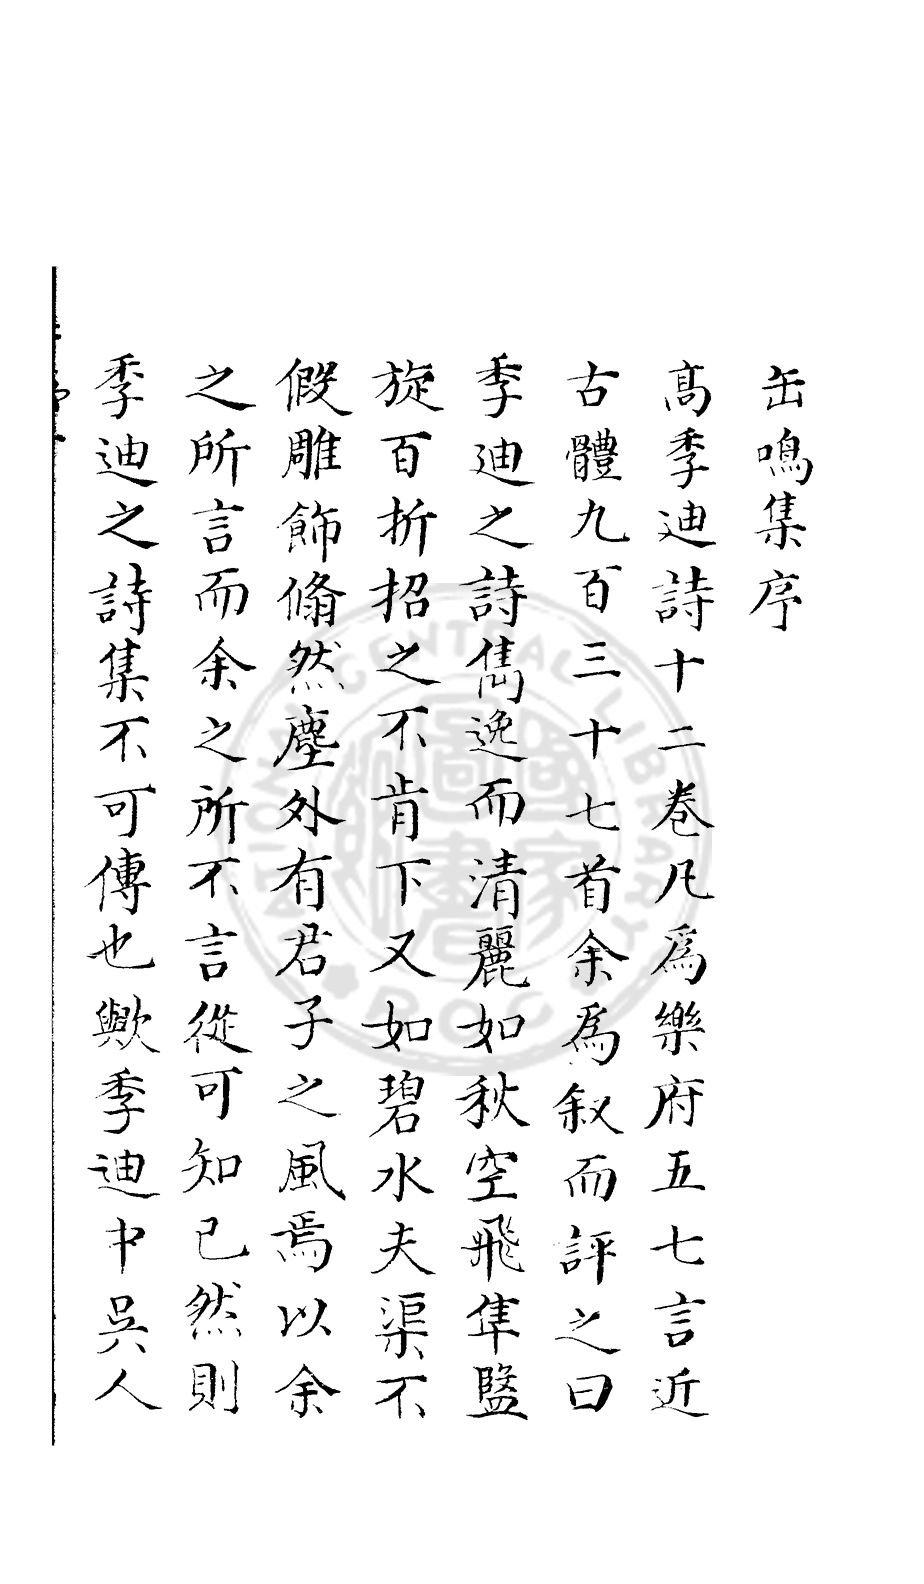 缶鳴集序
髙季迪詩十二卷凡爲樂府五七言近
古體九百三十七首余爲叙而評之曰
季迪之詩雋逸而清麗如秋空飛隼盤
旋百折招之不肯下又如碧水夫渠不
假雕飾翛然塵外有君子之風焉以余
之所言而余之所不言從可知已然則
季迪之詩集不可傳也歟季迪中吳人
NATIONAL CENTRAL LIBRARY
R.O.C
國家圖書館